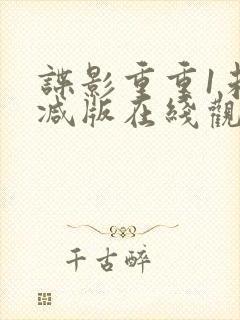 諜影重重1未
減版在綫觀
千古醉